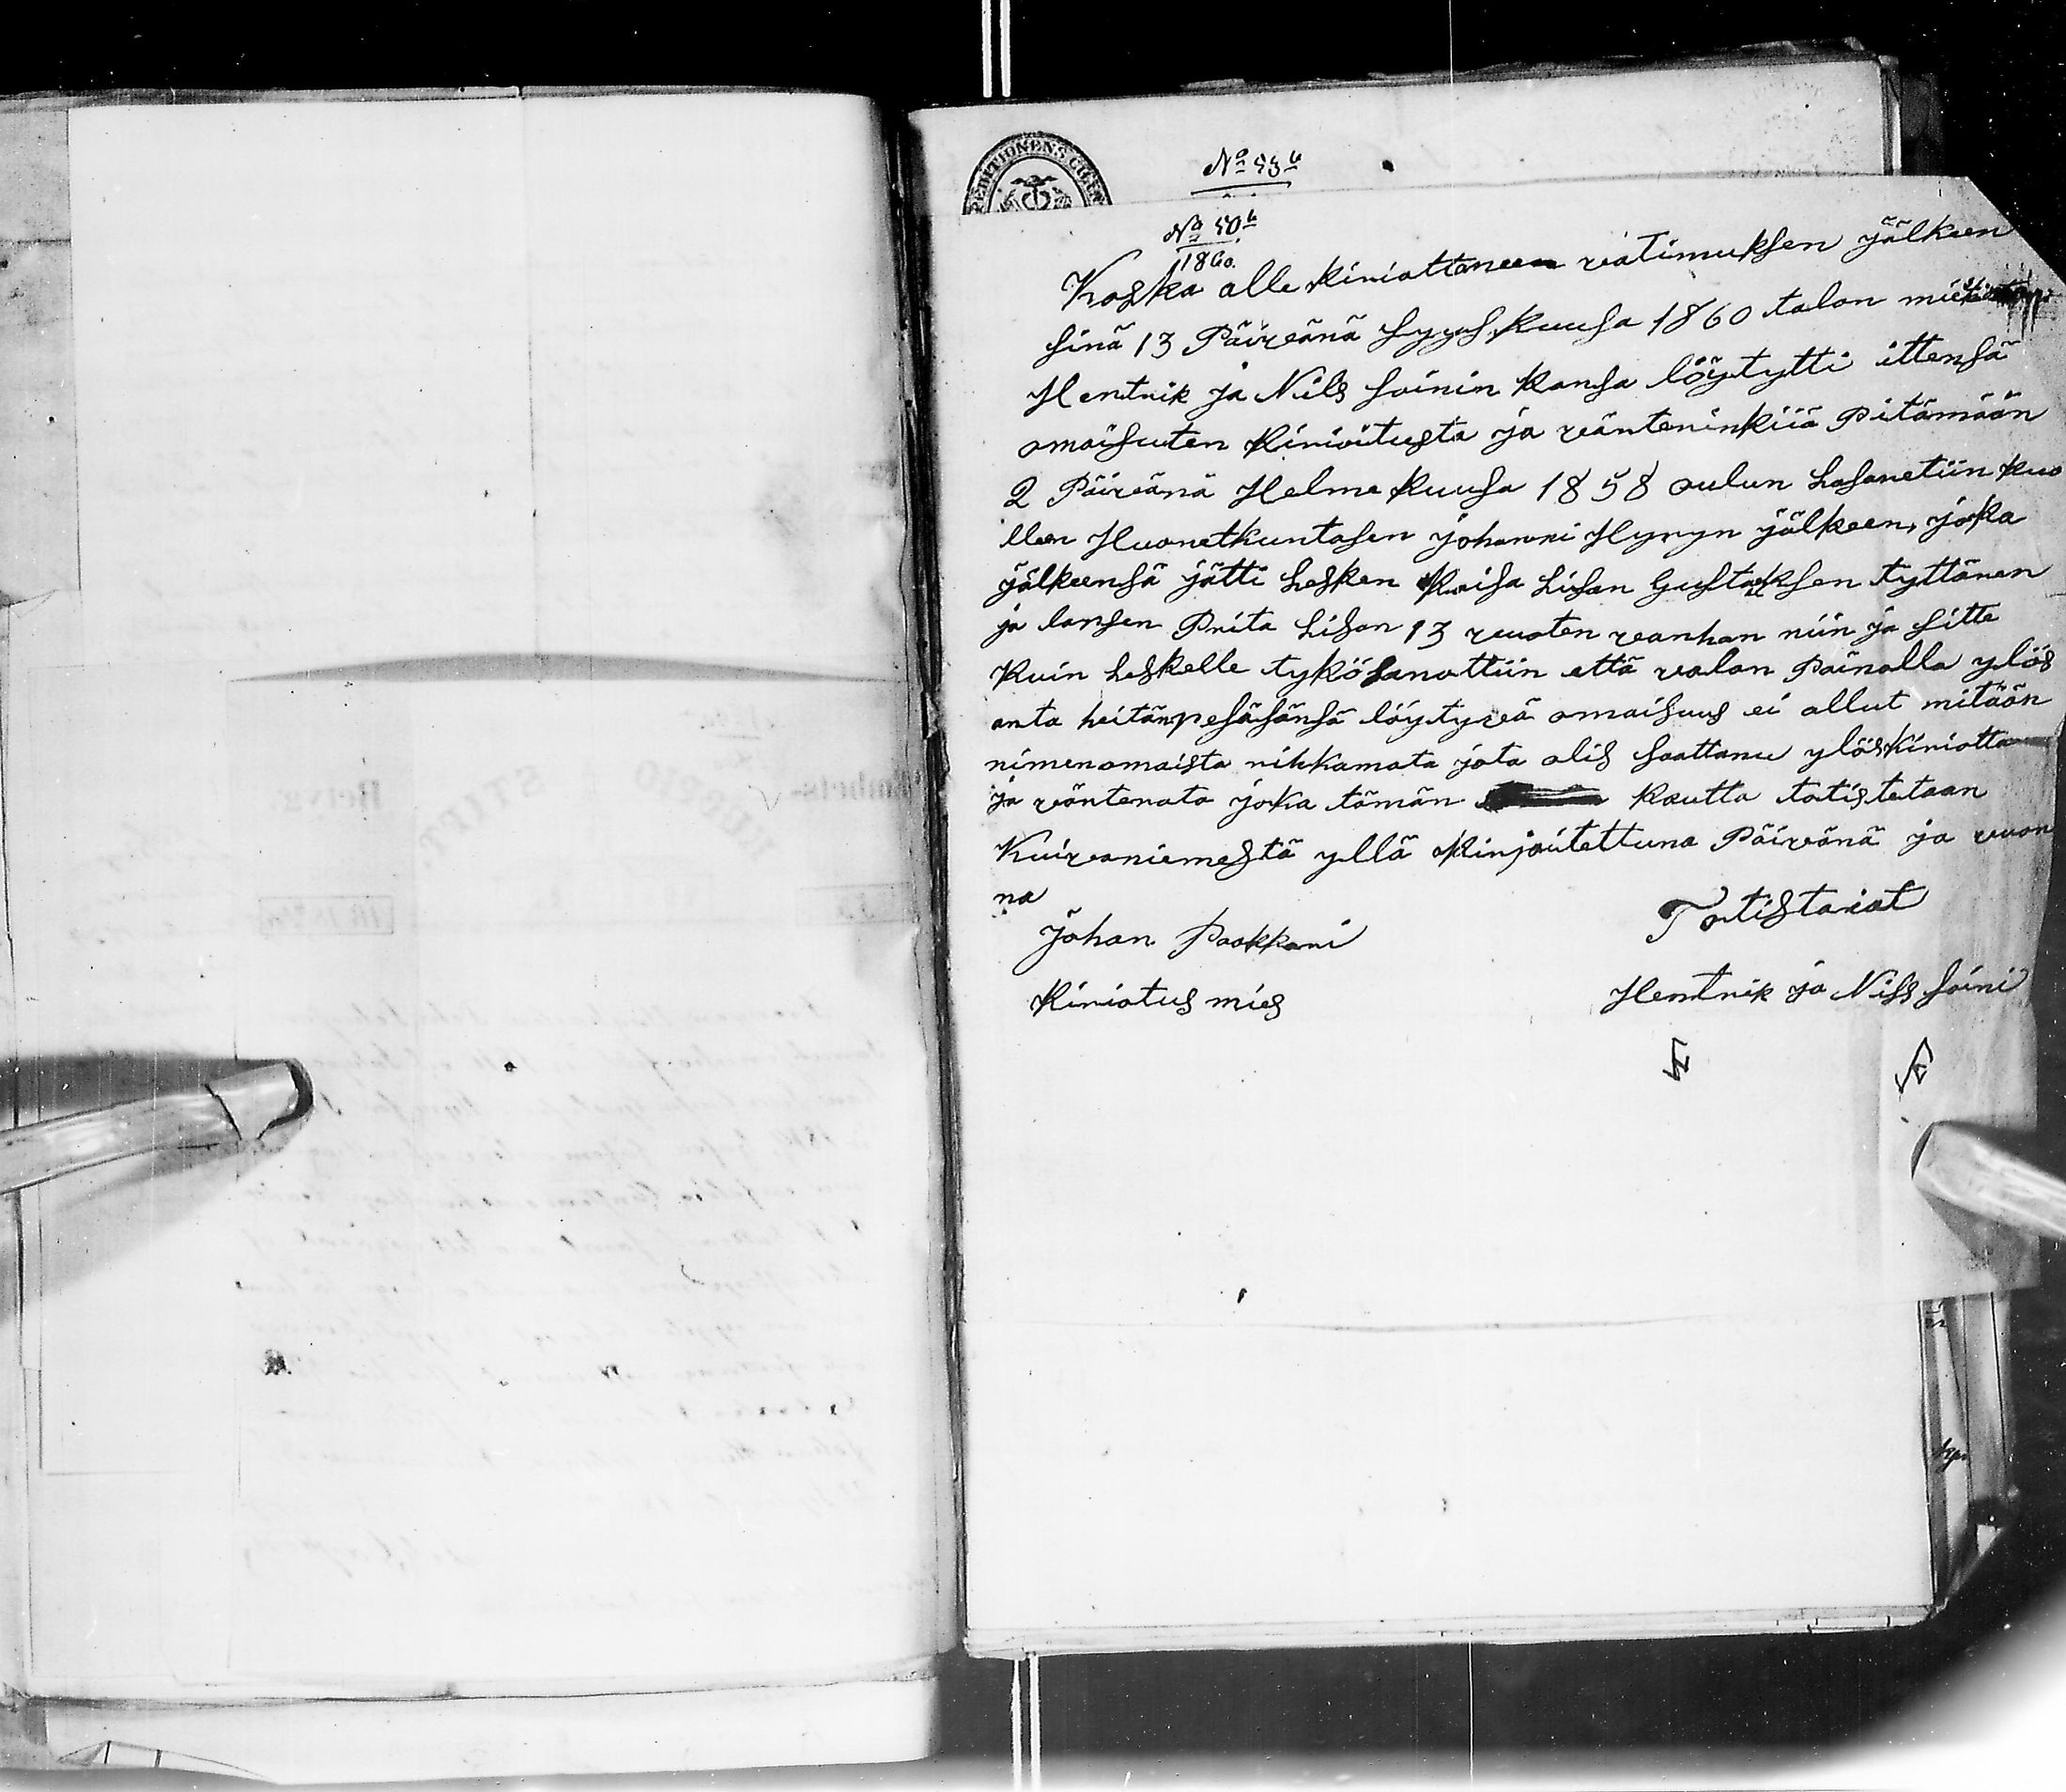 No 53b
No 50b
1860.
Koska alle kiriatteneen vatimuksen jälkeen
sinä 13 Päivänä Syyskuusa 1860 talon
Hentrik ja Nils Soinin kansa löytytti ittensä
omaisuten kirioitusta ja värteninkiiä Pitämään
2 Päivänä Helmekuusa 1858 oulun Lasanetiin kuo
lleen Huonetkuntasen Johanni Hyryn jälkeen, joka
jälkeensä jätti Lesken Kaisa Lisan Gustaksen tyttären
ja lansen Prita Lisan 13 vuoten vanhan niin ja sitte
kuin Leskelle tykö sanottiin että valan Painolla ylös
anta heitänpesäsänsä löytyvä omaisuus ei ollut mitään
nimenomaista rikkamata jota olis saattanu ylöskiriotta
ja värtenata joka tämän kautta totistetaan
Kuivaniemestä yllä kirjoitettuna Päivänä ja vuon
na
Johan Paakkari
Totistavat
Kiriotus mies
Hentrik ja Nils Soini